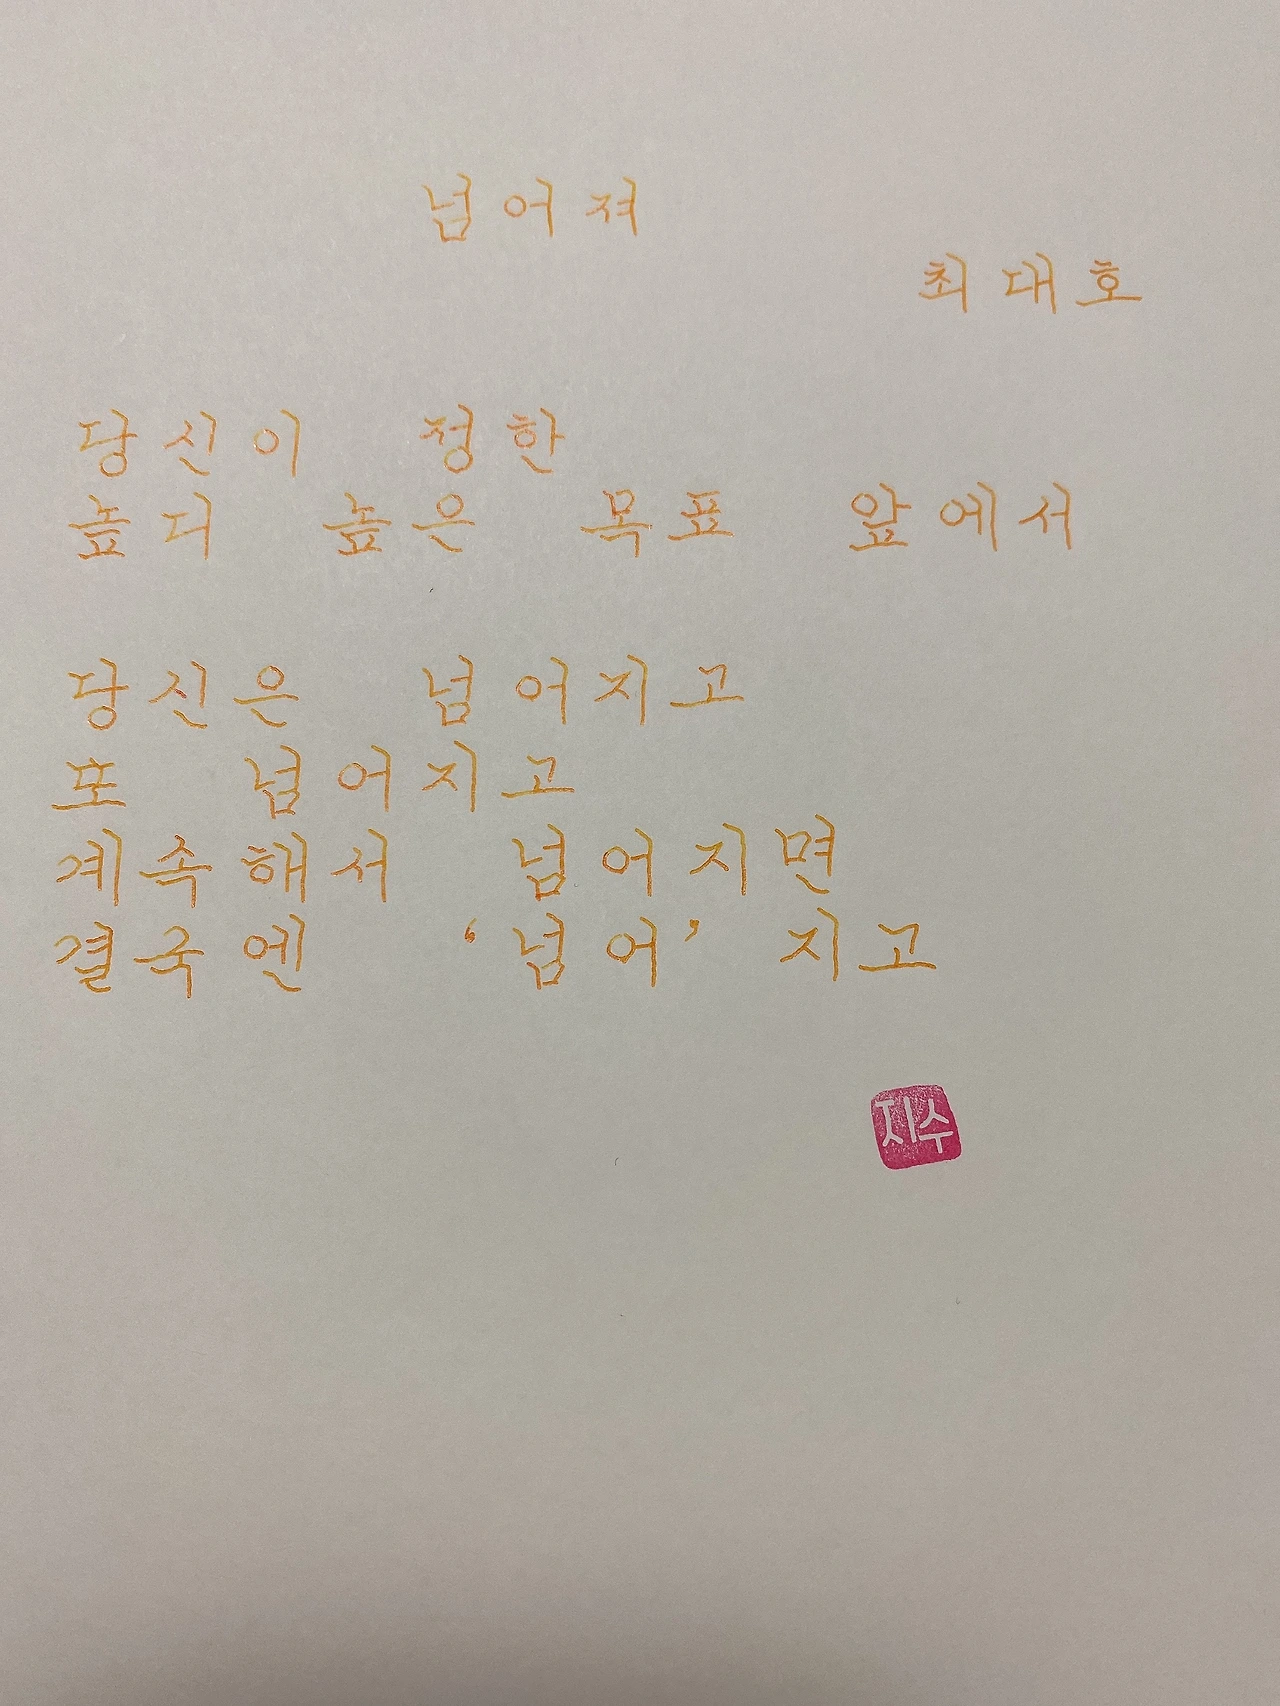 넘어져
최대호
당신이 정한
높디 높은 목표 앞에서
당신은 넘어지고
또 넘어지고
계속해서 넘어지면
결국엔 ‘넘어’ 지고
지수